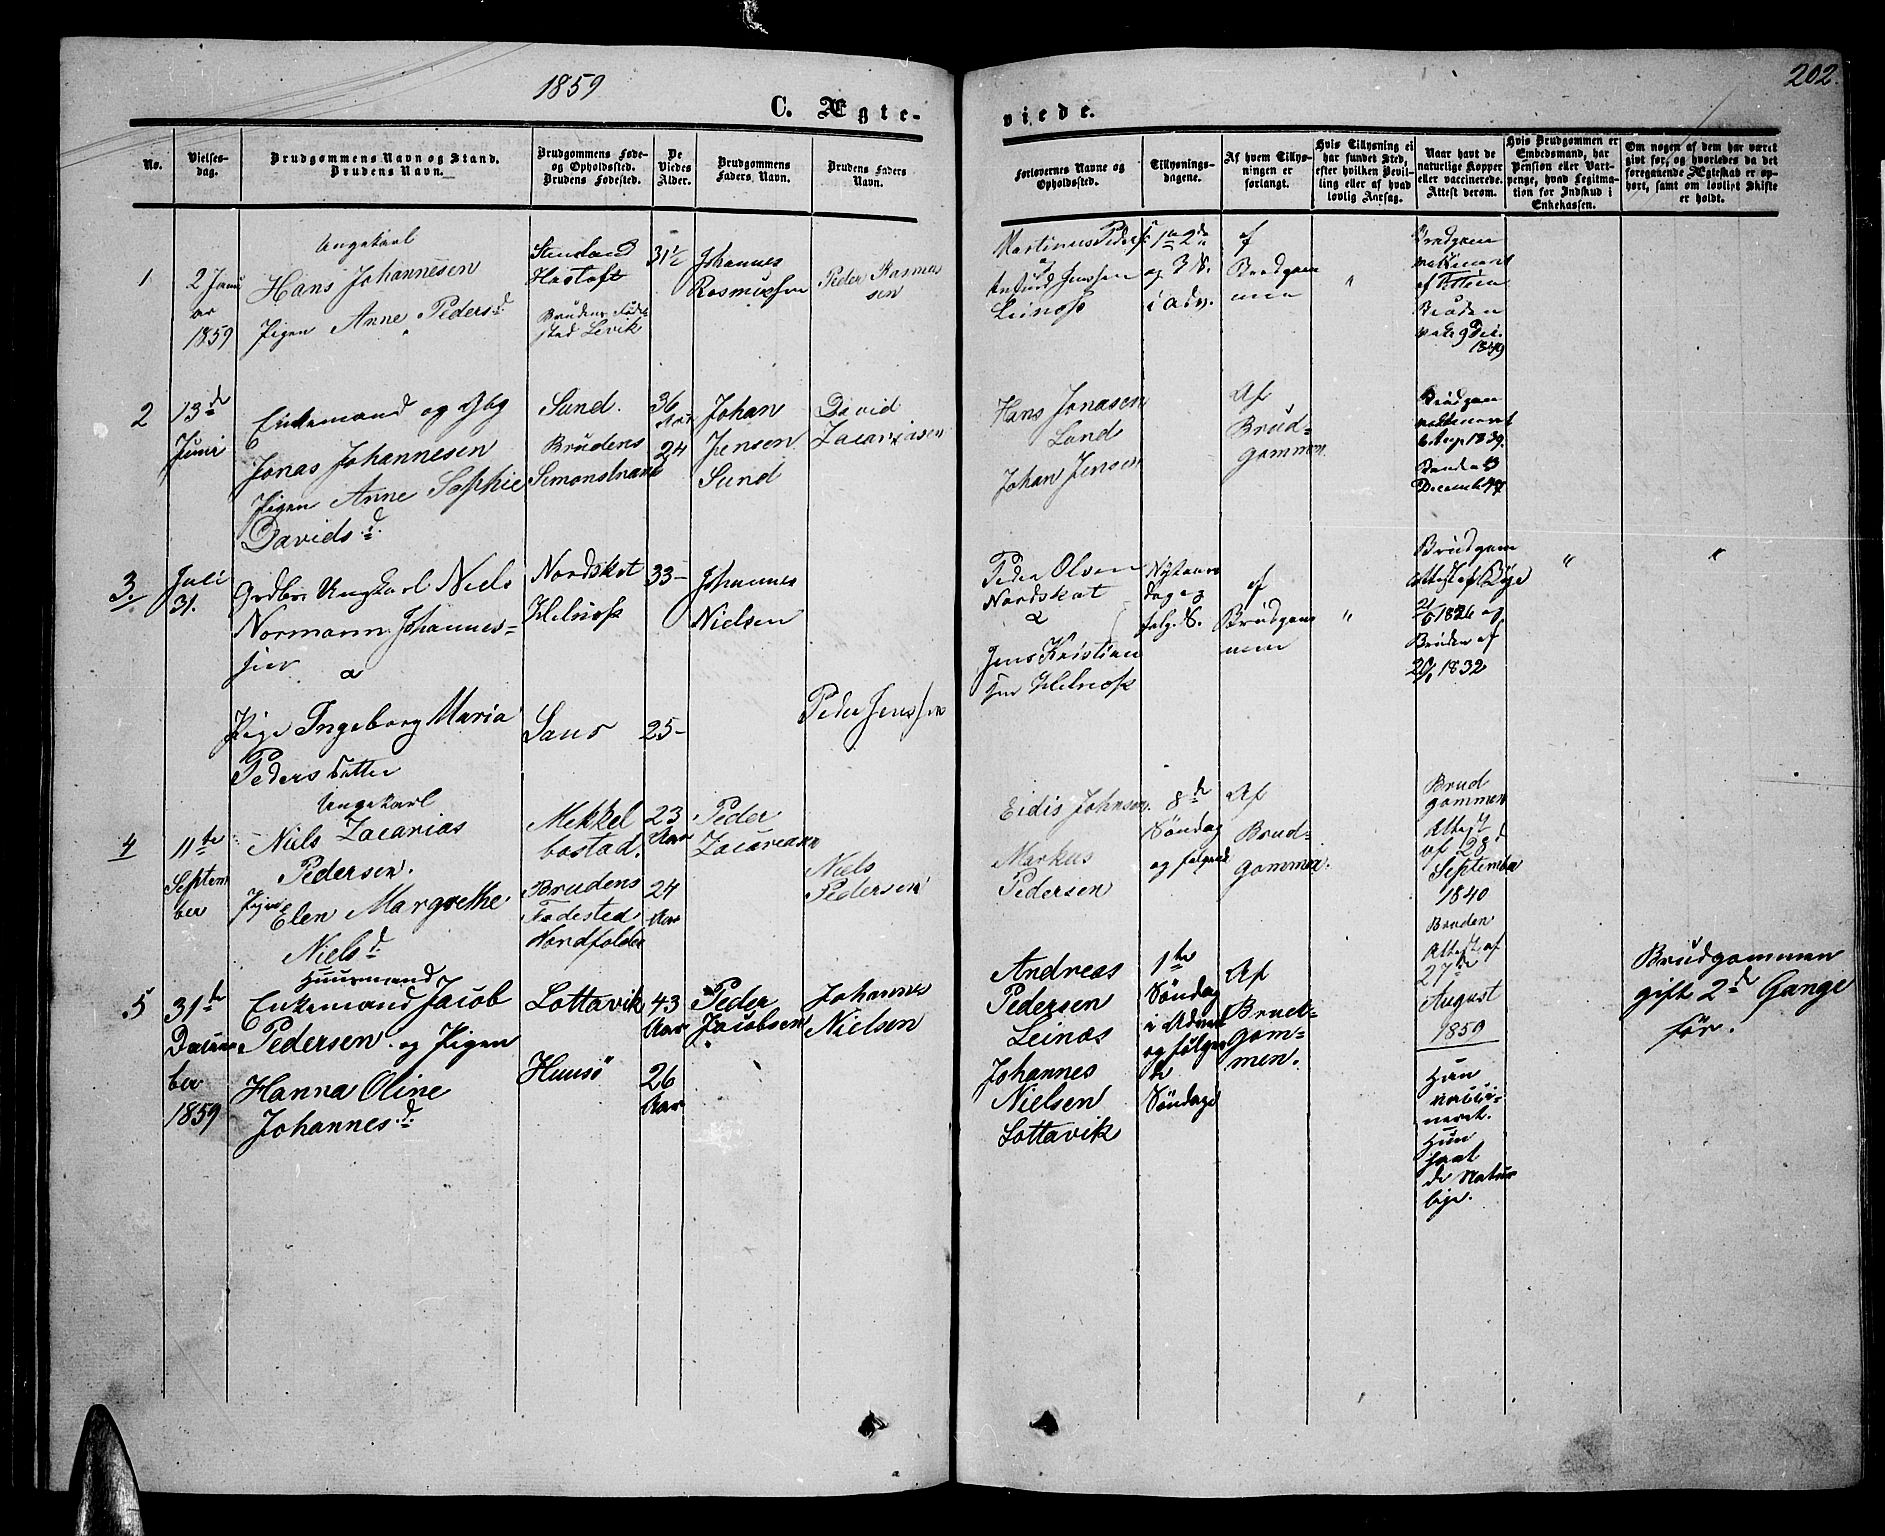 1859
202.
C. Ægte-
viede.
No.
Vielses-
dag.
Brudgommens Navn og Stand.
Brudens Navn.
Brudgommens Føde-
og Opholdssted.
Brudens Fødested.
De
Viedes
Alder.
Brudgommens
Faders Navn.
Brudens Faders
Navn.
Forlovernes Navne og
Opholdssted.
Tillysnings-
dagene.
Af hvem Tillys-
ningen er
forlangt.
Hvis Tillysning ei
har fundet Sted,
efter hvilken Bevil-
ling eller af hvad
lovlig Aarsag.
Naar havt de
naturlige Kopper
eller vaccinerede.
Attest derom.
Hvis Brudgommen er
Embedsmand, har
Pension eller Vart-
penge, hvad Legitma-
tion for Indskud i
Enkekassen.
Om nogen af dem har været
gift før, og hvorledes da det
foregaaende Ægteskab er op-
hørt, samt om lovligt Skifte
er holdt.
1
2 Janu
ar
1859
Ungekarl
Hans Johannesen
Pigen Anne Peders d.
Brudens Føde-
sted Levik
31½
Johannes
Rasmussen
Peder Rasmus
sen
Martinus Peders
og
Jenssen
Leinæs
1te 2de
og 3 S.
i Adv.
af
Brudgom
men
"
Brudgom
Bruden
2
13de
Juni
Enkemand og
Jonas Johannesen
Pigen Anne Sophie
Davids d.
Sund.
Brudens
Simonstrand
36
Aar
24
Johan
Jensen
Sund
David
Zacariasen
Hans Jonasen
Sund
Johan Jensen
Af
Brud-
gommen
Brudgom
1839.
3.
Juli
31.
Ungkarl Niels
Normann Johannes-
sen
a
Pige Ingeborg Maria
Peders Datter
Nordskot
Helnæs
33-
25-
Johannes
Nielsen
Peder Jenssen
Peder Olsen
Nordskot
a
Jens Kristian
sen Helnæs
Nytaars
dag og
følg. S.
af
Brudgom
men
"
Brudgom
1826 og
Bruden af
1832
"
"
4
11te
Septem
ber
Ungekarl
Niels Zacarias
Pedersen.
Pigen Elen Margrethe
Niels d.
Mekkel
bostad.
Brudens
Fødested
Nordfolden
23
Aar
24
Aar
Peder
Zacariasen
Niels
Pedersen
Eidis Johnsen.
Markus
Pedersen
8de
Søndag
og følgende
Af
Brud-
gommen.
Brud
gommen
Attest
af 28d
September
1840
Bruden
Attest af
27de
August
1850
5
31de
Decem
ber
1859
Huusmand
Enkemand Jacob
Pedersen og Pigen
Hanna Oline
Johannes d.
Lottavik
Huusø
43
Aar
26
Aar
Peder
Jacobsen
Johannes
Nielsen
Andreas
Pedersen
Leinæs
Johannes
Nielsen
Lottavik
1te
Søndag
i Advent
og følgen
de
Søndage
Af
Brud-
gom-
men.
Han
vacci-
neret.
Hun
havt
de Natur
lige.
Brudgommen
gift 2de Gange
før.